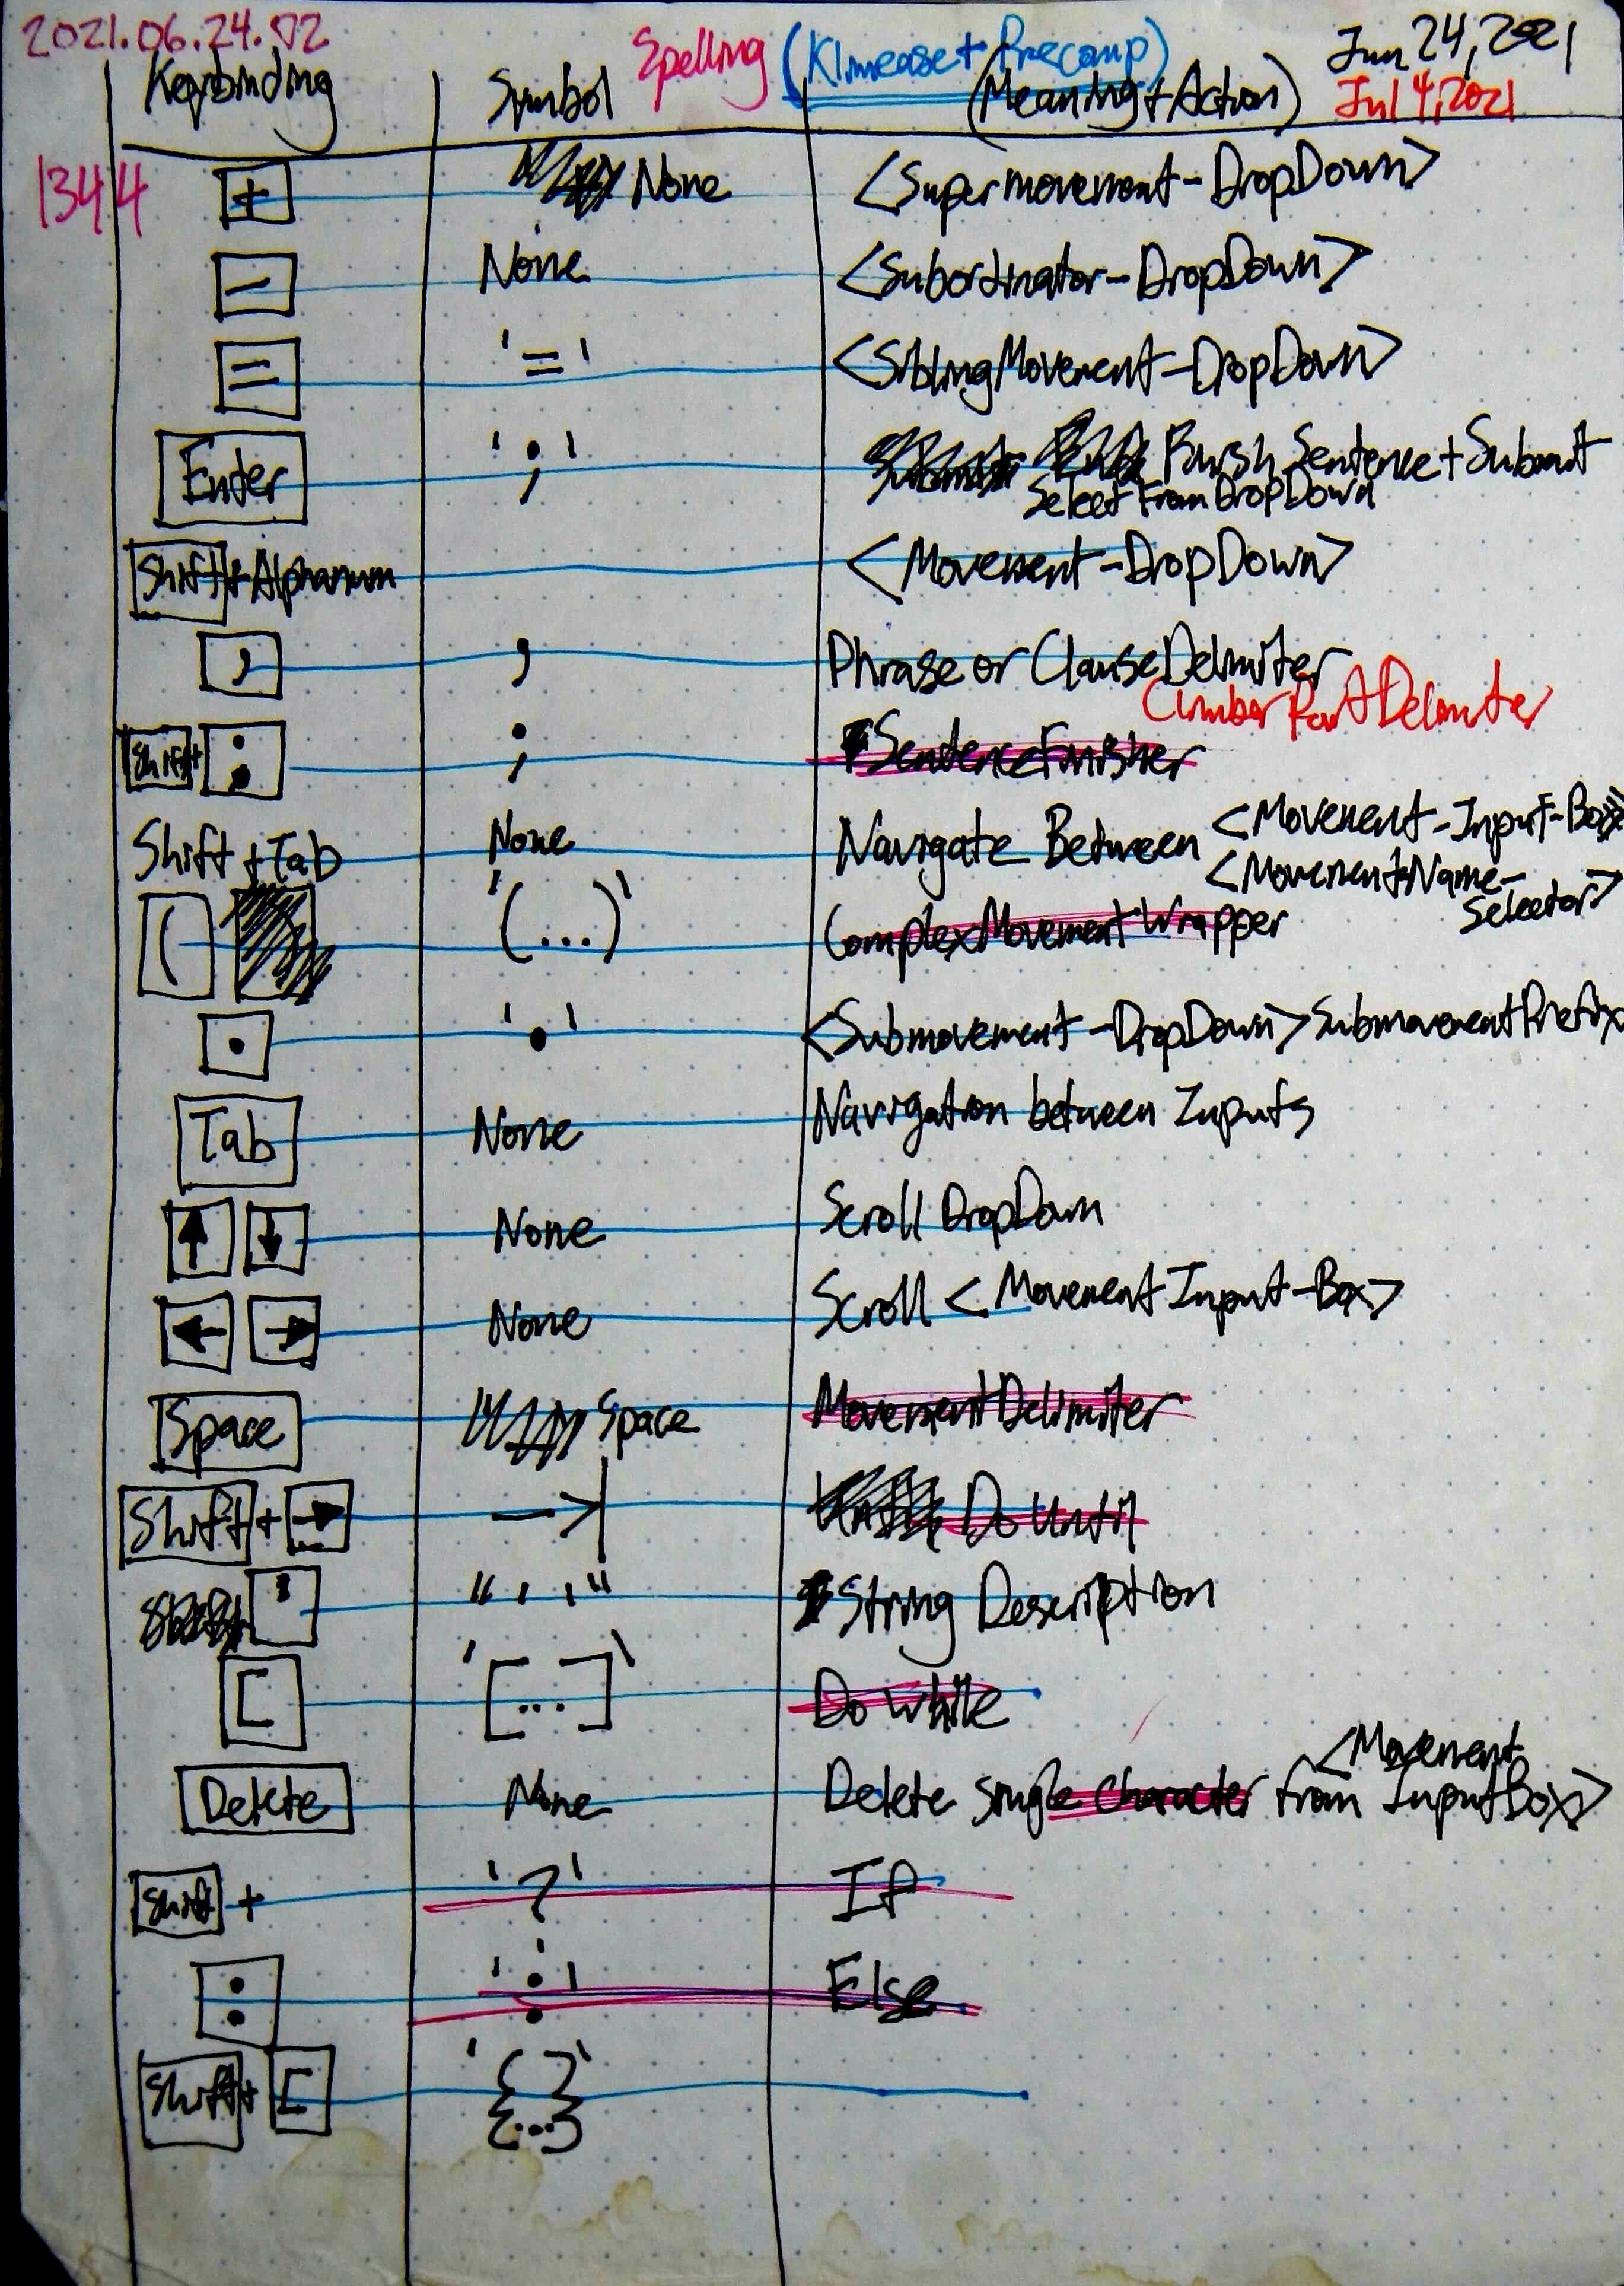 2021.06.24.02
Spelling (Klimease + Precomp) Jun 24, 2021
Keybinding Symbol (Meaning + Action) Jul 4, 2021
1344 + None <Supermovement-DropDown>
- None <Subordinator-DropDown>
= '=' <SiblingMovement-DropDown>
Enter ';' Finish Sentence + Submit
Select From DropDown
Shift + Alphanum <Movement-DropDown>
, , Phrase or Clause Delimiter
Climber Part Delimiter
Shift + : ; SentenceFinisher
Shift + Tab None Navigate Between <Movement-Input-Box>
<MovementName-
Selector>
( '(...)' ComplexMovementWrapper
. '.' <Submovement-DropDown> SubmovementPrefix
Tab None Navigation between Inputs
↑ ↓ None Scroll DropDown
← → None Scroll <Movement Input-Box>
Space Space MovementDelimiter
Shift + → —>| Do Until
' "..." String Description
[ '[...]' Do While
<Movement
Delete None Delete Single Character from InputBox>
Shift + '?' If
: ':' Else
Shift + [ '{...}'